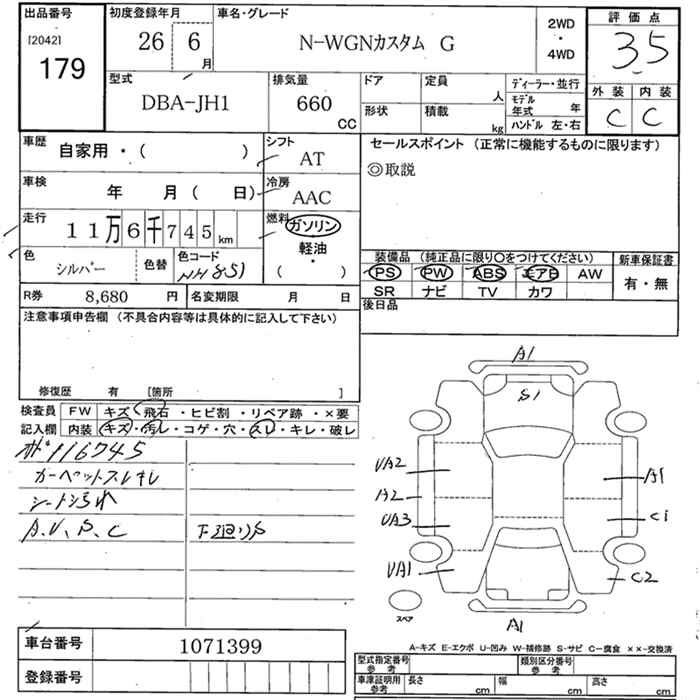 出品番号
[2042]
179
初度登録年月
26 6
月
車名・グレード
N-WGNカスタム G
2WD
・
4WD
評価点
3.5
外装 内装
C C
型式
DBA-JH1
排気量
660
CC
ドア
定員
人
形状
積載
kg
ディーラー・並行
モデル年式 年
ハンドル 左・右
車歴
自家用・( )
シフト
AT
車検
年 月 ( 日)
冷房
AAC
走行
11万6千745km
燃料
ガソリン
軽油
・
( )
色
シルバー
色替
色コード
NH851
R券
8,680 円
名変期限 月 日
セールスポイント (正常に機能するものに限ります)
◎取説
装備品 (純正品に限り○をつけてください)
PS PW ABS エアB AW
SR ナビ TV カワ
新車保証書
有・無
後日品
注意事項申告欄 (不具合内容等は具体的に記入して下さい)
修復歴 有 [箇所 ]
検査員
記入欄
FW キズ・飛石・ヒビ割・リペア跡・×要
内装 キズ・汚レ・コゲ・穴・スレ・キレ・破レ
116745
カーペットスレキレ
シート汚れ
A.U、P、C
下廻りS
A1
S1
UA2
A2
UA3
UA1
A1
C1
C2
スペア
A1
A-キズ E-エクボ U-凹み W-補修跡 S-サビ C-腐食 ××-交換済
車台番号
1071399
登録番号
型式指定番号
参考
類別区分番号
参考
車庫証明用
参考
長さ cm 幅 cm 高さ cm